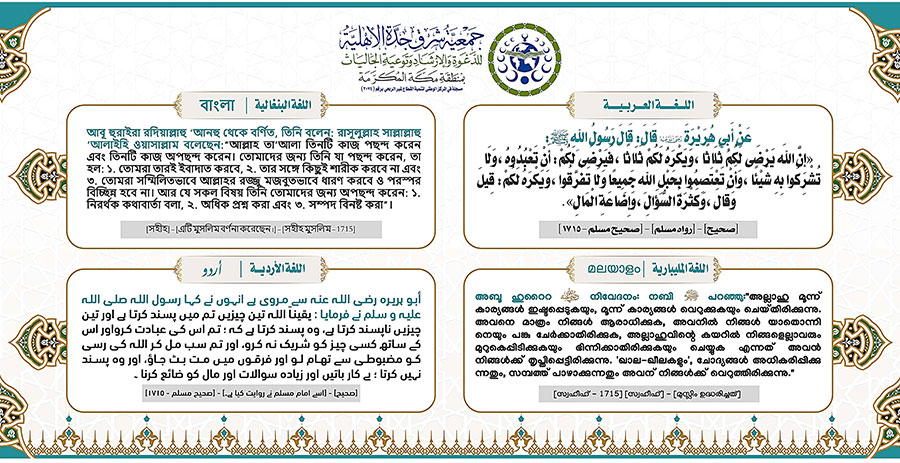 جمعية شرق جدة الأهلية
للدعوة والإرشاد وتوعية الجاليات
بمنطقة مكة المكرمة
اللغة العربية
عَنْ أَبِي هُرَيْرَةَ قَالَ: قَالَ رَسُولُ اللهِ ﷺ:
«إِنَّ اللهَ يَرْضَى لَكُمْ ثَلَاثًا ، وَيَكْرَهُ لَكُمْ ثَلَاثًا ، فَيَرْضَى لَكُمْ : أَنْ تَعْبُدُوهُ ، وَلَا
تُشْرِكُوا بِهِ شَيْئًا ، وَأَنْ تَعْتَصِمُوا بِحَبْلِ اللهِ جَمِيعًا وَلَا تَفَرَّقُوا ، وَيَكْرَهُ لَكُمْ : قِيلَ
وَقَالَ ، وَكَثْرَةَ السُّؤَالِ ، وَإِضَاعَةَ الْمَالِ».
[صحيح] – [رواه مسلم] – [صحيح مسلم – ١٧١٥]
اللغة البنغالية | বাংলা
আবূ হুরাইরা রদিয়াল্লাহু ‘আনহু থেকে বর্ণিত, তিনি বলেন: রাসূলুল্লাহ সাল্লাল্লাহু
‘আলাইহি ওয়াসাল্লাম বলেছেন:"আল্লাহ তা‘আলা তিনটি কাজ পছন্দ করেন
এবং তিনটি কাজ অপছন্দ করেন। তোমাদের জন্য তিনি যা পছন্দ করেন, তা
হল: ১. তোমরা তারই ইবাদাত করবে, ২. তার সঙ্গে কিছুই শারীক করবে না এবং
৩. তোমরা সম্মিলিতভাবে আল্লাহর রজ্জু মজবুতভাবে ধারণ করবে ও পরস্পর
বিচ্ছিন্ন হবে না। আর যে সকল বিষয় তিনি তোমাদের জন্য অপছন্দ করেন: ১.
নিরর্থক কথাবার্তা বলা, ২. অধিক প্রশ্ন করা এবং ৩. সম্পদ বিনষ্ট করা"।
[সহীহ] – [এটি মুসলিম বর্ণনা করেছেন।] – [সহীহ মুসলিম – 1715]
اللغة المليبارية | മലയാളം
അബൂ ഹുറൈറ നിവേദനം: നബി ﷺ പറഞ്ഞു:"അല്ലാഹു മൂന്ന്
കാര്യങ്ങൾ ഇഷ്ടപ്പെടുകയും, മൂന്ന് കാര്യങ്ങൾ വെറുക്കുകയും ചെയ്തിരിക്കുന്നു.
അവനെ മാത്രം നിങ്ങൾ ആരാധിക്കുക, അവനിൽ നിങ്ങൾ യാതൊന്നി
നെയും പങ്കു ചേർക്കാതിരിക്കുക, അല്ലാഹുവിന്റെ കയറിൽ നിങ്ങളെല്ലാവരും
മുറുകെപ്പിടിക്കുകയും ഭിന്നിക്കാതിരിക്കുകയും ചെയ്യുക എന്നത് അവൻ
നിങ്ങൾക്ക് തൃപ്തിപ്പെട്ടിരിക്കുന്നു. 'ഖാല-ഖീലകളും', ചോദ്യങ്ങൾ അധികരിപ്പിക്കു
ന്നതും, സമ്പത്ത് പാഴാക്കുന്നതും അവന് നിങ്ങൾക്ക് വെറുത്തിരിക്കുന്നു."
[സ്വഹീഹ് - 1715] [സ്വഹീഹ്] - [മുസ്ലിം ഉദ്ധരിച്ചത്]
اللغة الأردية | اُردُو
أبو ہریرہ رضی اللہ عنہ سے مروی ہے انہوں نے کہا رسول اللہ صلی اللہ
علیہ و سلم نے فرمایا : یقیناً اللہ تین چیزیں تم میں پسند کرتا ہے اور تین
چیزیں ناپسند کرتا ہے، وہ پسند کرتا ہے کہ : تم اس کی عبادت کرواور اس
کے ساتھ کسی چیز کو شریک نہ کرو، اور تم سب مل کر اللہ کی رسی
کو مضبوطی سے تھام لو اور فرقوں میں مت بٹ جاؤ، اور وہ پسند
نہیں کرتا : بے کار باتیں اور زیادہ سوالات اور مال کو ضائع کرنا ۔
[صحیح] – [اسے امام مسلم نے روایت کیا ہے۔] – [صحیح مسلم – ١٧١٥]